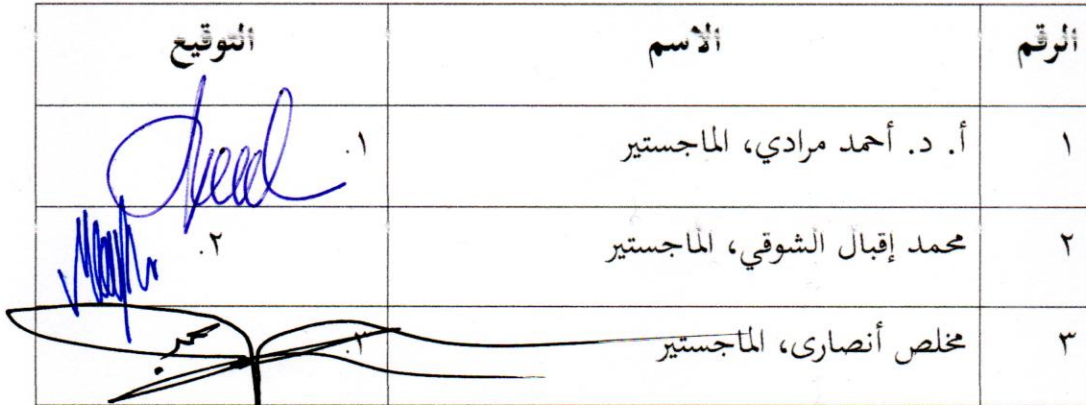 الرقم الاسم التوقيع
١ أ. د. أحمد مرادي، الماجستير ١.
٢ محمد إقبال الشوقي، الماجستير ٢.
٣ مخلص أنصارى، الماجستير ٣.